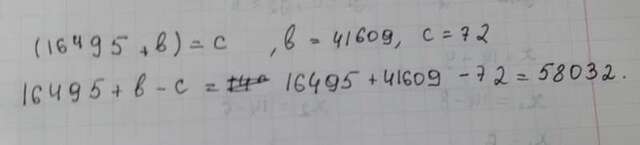 (16495 + в) = с , в = 41609, с = 72
16495 + в - с = 16495 + 41609 - 72 = 58032.